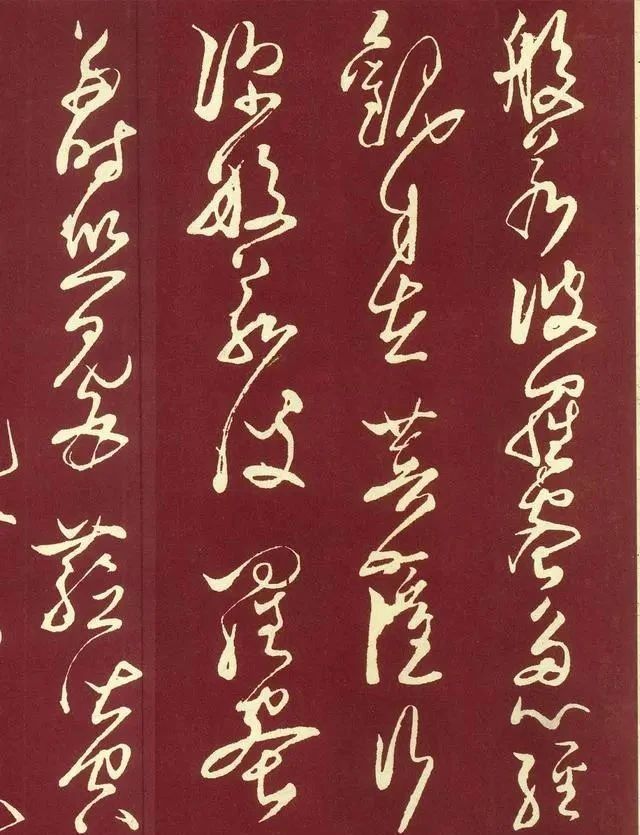 般若波羅蜜多心經
觀自在菩薩行
深般若波羅蜜
多時照見五蘊皆空